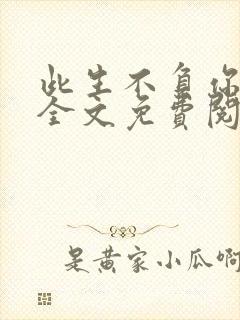 此生不负你
全文免費閱
是黄家小瓜啊